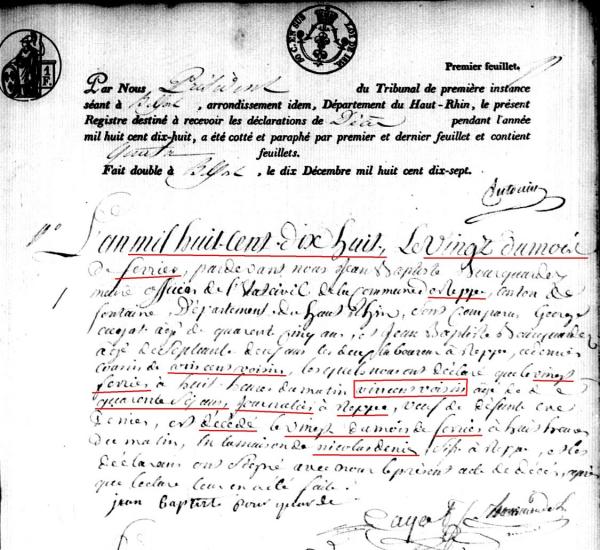 Premier feuillet.
Par Nous, Président du Tribunal de première instance
séant à Belfort, arrondissement idem, Département du Haut-Rhin, le présent
Registre destiné à recevoir les déclarations de Décès pendant l'année
mil huit cent dix-huit, a été cotté et paraphé par premier et dernier feuillet et contient
feuillets.
Fait double à Belfort, le dix Décembre mil huit cent dix-sept.
Antonin
N.º
1
L'an mil huit cent dix huit, Le vingt du mois
De fevrier, pardevant nous Jean Baptiste
maire officier de l'Etat civil de la commune de Reppe, canton de
fontaine, Département du Haut Rhin, sont comparus George
agé de quarente cinq ans, et Jean Baptiste
agé de septante deux ans les deux laboureur à Reppe,
cousin de vincens voisin, lesquels nous ont déclaré que le vingt
fevrier à huit heures du matin vincens voisin agé de
quarente ans journalier à Reppe, veuf de défunt eve
Denier, est décédé le vingt du mois de fevrier à huit heures
Du matin, en la maison de nicolas denie, à Reppe, et les
déclarans ont signé avec nous le présent acte de décès, après
que lecture leur en a été faite.
jean baptiste